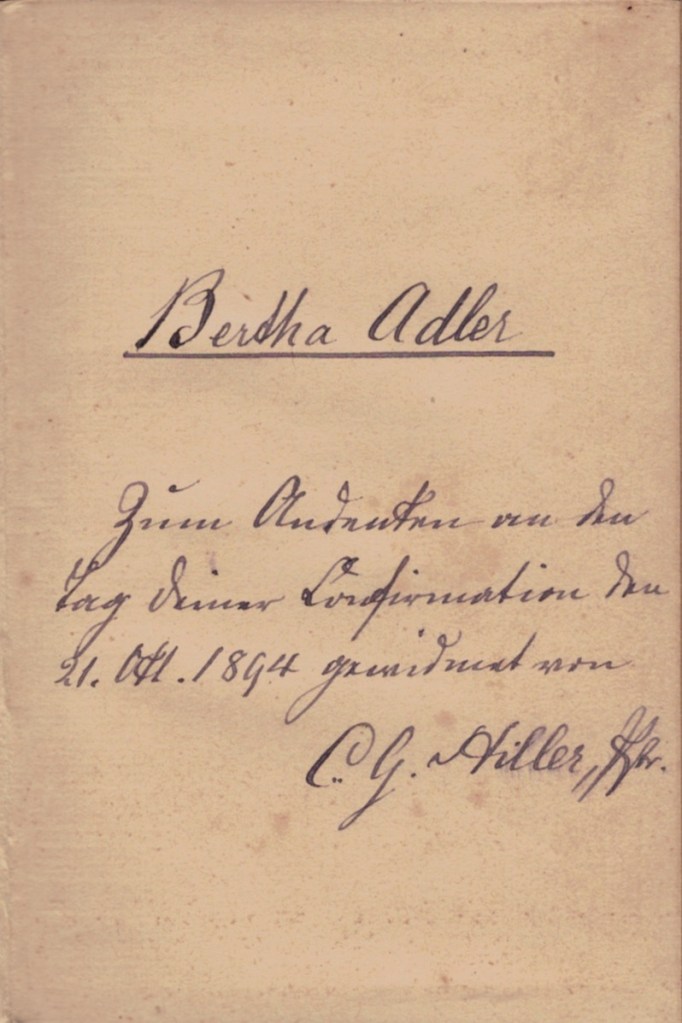 Bertha Adler
Zum Andenken an den
Tag deiner Confirmation den
21. Okt. 1894 gewidmet von
C. G. Hiller, Pfr.